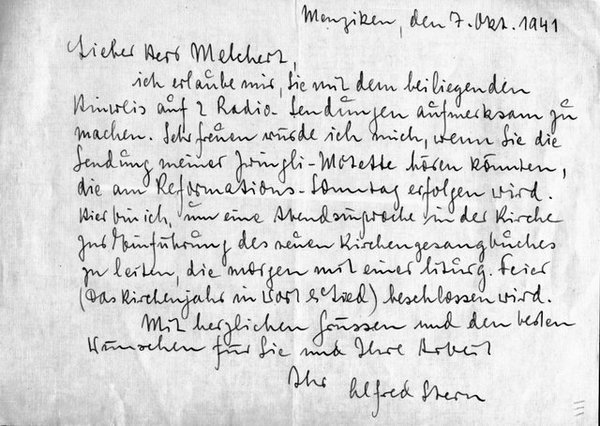 Menziken, den 7. Okt. 1941
Lieber Herr Melchert,
ich erlaube mir, Sie mit dem beiliegenden
Hinweis auf 2 Radio-Sendungen aufmerksam zu
machen. Sehr freuen würde ich mich, wenn Sie die
Sendung meiner Zwingli-Motette hören könnten,
die am Reformations-Sonntag erfolgen wird.
Hier bin ich, um eine Abendsingwoche in der Kirche
zur Einführung des neuen Kirchengesangbuches
zu leiten, die morgen mit einer liturg. Feier
(Das Kirchenjahr in Wort & Lied) beschlossen wird.
Mit herzlichen Grüssen und den besten
Wünschen für Sie und Ihre Arbeit
Ihr Alfred Stern